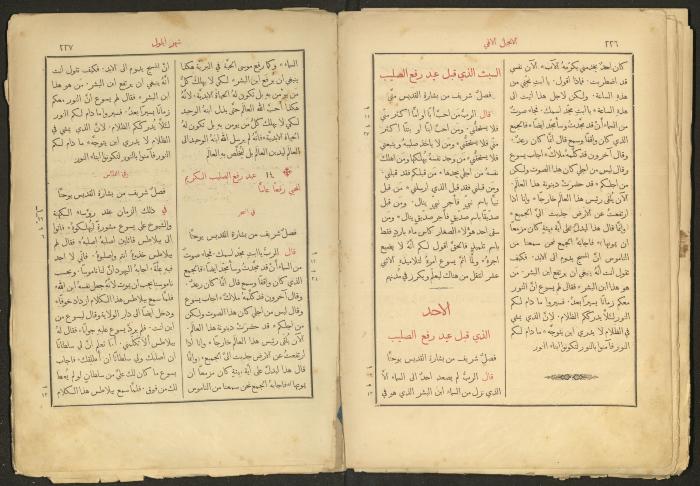 ٢٢٦
الانجيل الالهي
كان احدٌ يخدمني يكرّمهُ الآب* الآن نفسي
قد اضطربت* فماذا اقول* يا ابتِ نجّني من
هذه الساعة* ولكن لاجل هذا اتيت الى
هذه الساعة* يا ابتِ مجّد اسمك* فجاء صوت
من السماء أَنْ قد مجّدتُ وسأُمجّد ايضاً* فالجمع
الذي كان واقفاً وسمع قال انَّا كان رعدٌ*
وقال آخرون قد كلّمهُ ملاك* اجاب يسوع
وقال ليس من اجلي كان هذا الصوت ولكن
من اجلكم* قد حضرت دينونة هذا العالم*
الآن يُلقى رئيس هذا العالم خارجاً* وانا اذا
ارتفعتُ عن الارض جذبت اليَّ الجميع*
وانَّما قال هذا ليدلّ على أَيّة ميتةٍ كان مزمعاً
ان يموتها* فاجابهُ الجمع نحن سمعنا من
الناموس انَّ المسيح يدوم الى الابد* فكيف
تقول انت أَنَّهُ ينبغي ان يرتفع ابن البشر* مَن
هو هذا ابن البشر* فقال لهم يسوع انَّ النور
معكم زماناً يسيراً بعدُ* فسيروا ما دام لكم
النور لئلّا يدرككم الظلام* لانَّ الذي يمشي
في الظلام لا يدري اين يتوجّه* ما دام لكم
النور فآمنوا بالنور لتكونوا ابناء النور
السبت الذي قبل عيد رفع الصليب
فصلٌ شريف من بشارة القديس متّى
قال الربُّ مَن احبَّ اباً او امّاً اكثر منّي
فلا يستحقّني* ومن احبَّ ابناً او بنتاً اكثر
منّي فلا يستحقّني* ومن لا ياخذ صليبهُ ويتبعني
فلا يستحقّني* من وجد نفسهُ يهلكها ومن اهلك
نفسهُ من اجلي يجدها* مَن قبلكم فقد قبلني*
ومن قبلني فقد قبل الذي ارسلني* من قبل
نبيّاً باسم نبيٍّ فأَجر نبيٍّ ينال* ومن قبل
صدّيقاً باسم صدّيقٍ فأَجر صدّيقٍ ينال* ومن
سقى احد هؤلاء الصغار كأس ماءٍ باردٍ فقط
باسم تلميذٍ فالحقَّ اقول لكم أَنَّهُ لا يضيع
اجرهُ* ولمَّا اتمَّ يسوع امرهُ لتلاميذهِ الاثني
عشر انتقل من هناك ليعلّم ويكرز في مدنهم
الاحد
الذي قبل عيد رفع الصليب
فصلٌ شريف من بشارة يوحنا
قال الربُّ لم يصعد احدٌ الى السماء الَّا
الذي نزل من السماء ابن البشر الذي هو في
شهر ايلول
٢٢٧
السماء* وكما رفع موسى الحيّة في البريّة هكذا
ينبغي ان يُرفع ابن البشر* لكي لا يهلك كلُّ
من يؤمن بهِ بل تكون لهُ الحياة الابديّة* لانّهُ
هكذا احبَّ الله العالم حتّى بذل ابنهُ الوحيد
لكي لا يهلك كلُّ من يؤمن بهِ بل تكون لهُ
الحياة الابديّة* فانّهُ لم يرسل الله ابنهُ الوحيد الى
العالم ليدين العالم بل ليخلّص بهِ العالم
١٤ عيد رفع الصليب الكريم
المحيي رفعاً علنيّاً
في السحر
فصلٌ شريف من بشارة القديس يوحنا
قال الربُّ يا ابتِ مجّد اسمك* فجاء صوت
من السماء أَنْ قد مجّدتُ وسأُمجّد ايضاً* فالجمع
الذي كان واقفاً وسمع قال انَّا كان رعدٌ*
وقال آخرون قد كلّمهُ ملاك* اجاب يسوع
وقال ليس من اجلي كان هذا الصوت ولكن
من اجلكم* قد حضرت دينونة هذا العالم*
الآن يُلقى رئيس هذا العالم خارجاً* وانا اذا
ارتفعتُ عن الارض جذبت اليَّ الجميع* وانَّما
قال هذا ليدلّ على أَيّة ميتةٍ كان مزمعاً ان
يموتها* فاجابهُ الجمع نحن سمعنا من الناموس
انَّ المسيح يدوم الى الابد* فكيف تقول انت
أَنَّهُ ينبغي ان يرتفع ابن البشر* مَن هو هذا
ابن البشر* فقال لهم يسوع انَّ النور معكم
زماناً يسيراً بعدُ* فسيروا ما دام لكم النور
لئلّا يدرككم الظلام* لانَّ الذي يمشي في
الظلام لا يدري اين يتوجّه* ما دام لكم
النور فآمنوا بالنور لتكونوا ابناء النور
وفي القداس
فصلٌ شريف من بشارة القديس يوحنا
في ذلك الزمان عقد رؤساء الكهنة
والشيوخ على يسوع مشورةً ليُهلكوهُ* فأتوا
الى بيلاطس قائلين اصلبهُ اصلبهُ* فقال لهم
بيلاطس خذوهُ انتم واصلبوهُ* فاني لا اجد
فيهِ علّةً* اجابهُ اليهود انَّ لنا ناموساً* وبحسب
ناموسنا يجب ان يموت لانّهُ جعل نفسهُ ابن الله*
فلمّا سمع بيلاطس هذا الكلام ازداد خوفاً*
ودخل ايضاً الى دار الولاية وقال ليسوع من
اين انت* فلم يردَّ يسوع عليهِ جواباً* فقال لهُ
بيلاطس ألا تكلّمني* أما تعلم انَّ لي سلطاناً
ان اصلبك ولي سلطاناً ان أُطلقك* فاجاب
يسوع ما كان لك عليَّ من سلطانٍ لو لم يُعطَ
لك من فوق* فلمّا سمع بيلاطس هذا الكلام